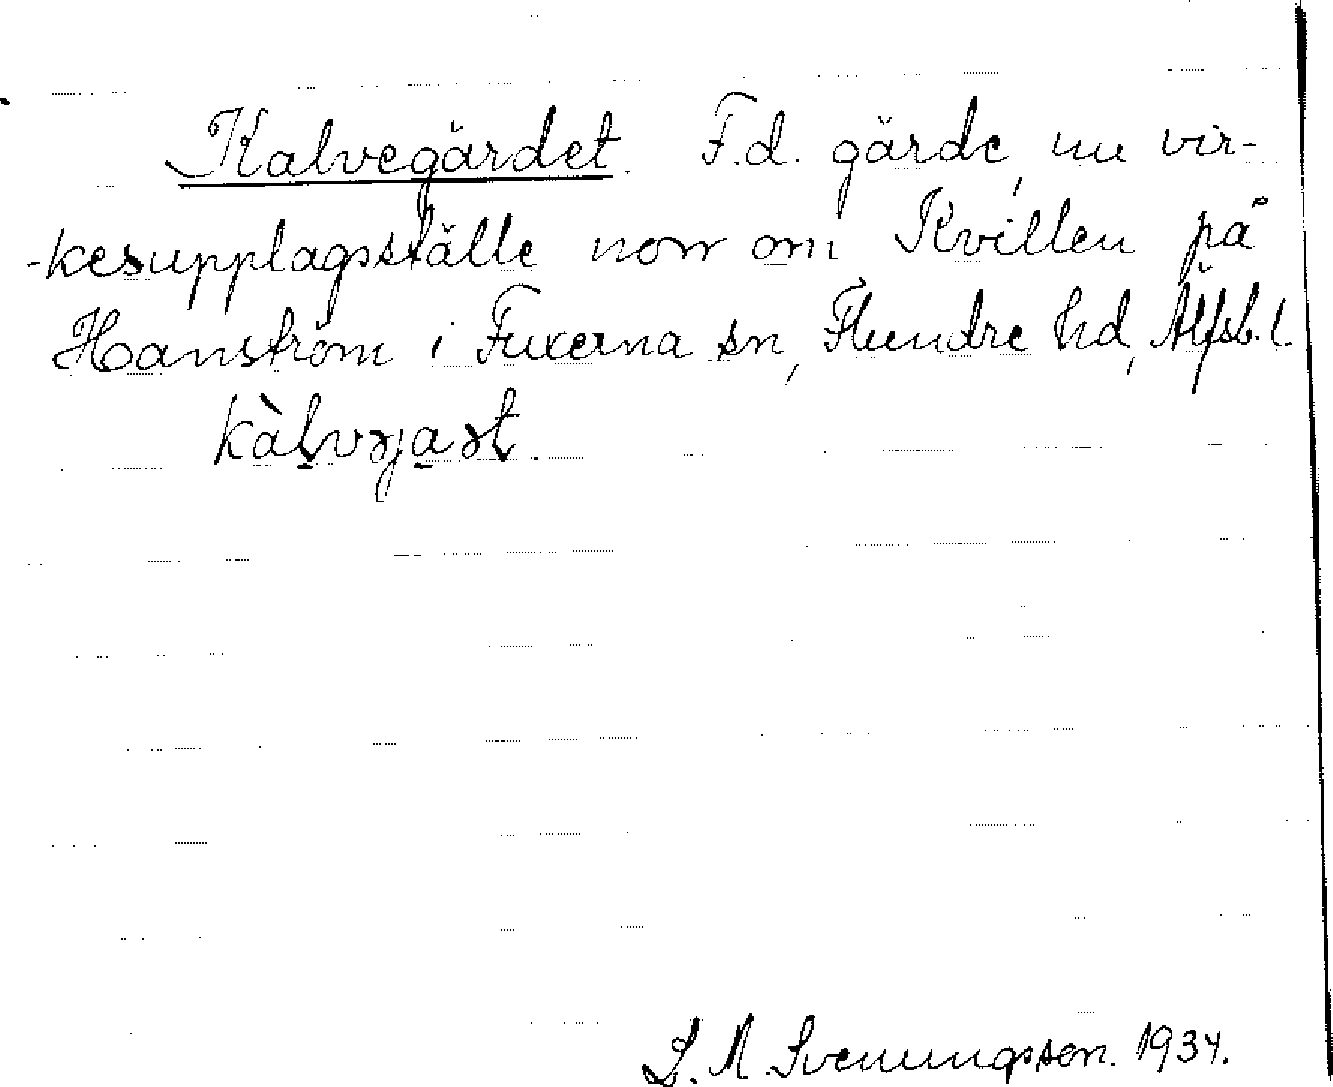 Kalvegärdet. F.d. gärde, nu vir-
-kesupplagsställe norr om Kvillen på
Hanström i Fuxerna sn, Flundre hd, Älfsb. l.
S. M. Svenungsson. 1934.